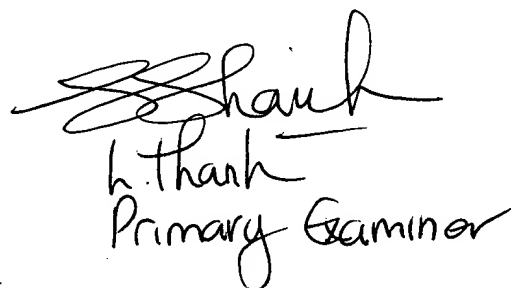 L. Thanh
Primary Examiner